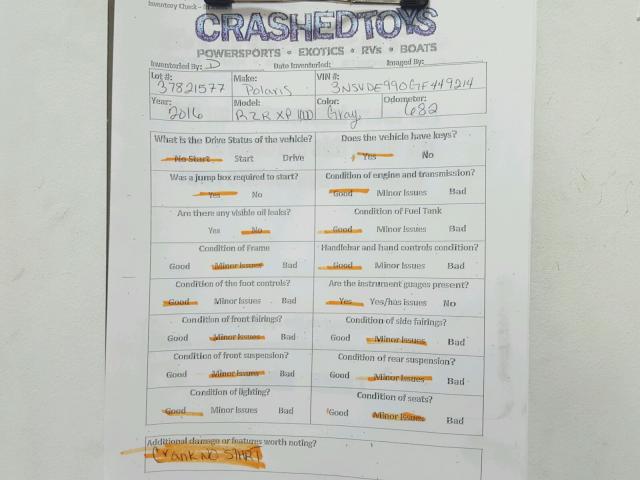 Inventory Check -
CRASHEDTOYS
POWERSPORTS • EXOTICS • RVs • BOATS
Inventoried By: D Date Inventoried: Imaged By:
Lot #: Make: VIN #:
37821577 Polaris 3NSVDE990GF449214
Year: Model: Color: Odometer:
2016 RZR XP 1000 Gray 682
What is the Drive Status of the vehicle? Does the vehicle have keys?
No Start Start Drive Yes No
Was a jump box required to start? Condition of engine and transmission?
Yes No Good Minor Issues Bad
Are there any visible oil leaks? Condition of Fuel Tank
Yes No Good Minor Issues Bad
Condition of Frame Handlebar and hand controls condition?
Good Minor Issues Bad Good Minor Issues Bad
Condition of the foot controls? Are the instrument guages present?
Good Minor Issues Bad Yes Yes/has issues No
Condition of front fairings? Condition of side fairings?
Good Minor Issues Bad Good Minor Issues Bad
Condition of front suspension? Condition of rear suspension?
Good Minor Issues Bad Good Minor Issues Bad
Condition of lighting? Condition of seats?
Good Minor Issues Bad Good Minor Issues Bad
Additional damage or features worth noting?
Crank NO START